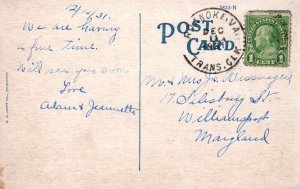 2/10/31.
We are having
a fine time.
Will see you soon
Love
Adam & Jeannette
POST
CARD
ROANOKE, VA.
DEC
11
TRANS. CLK.
1 CENT 1
Mr. & Mrs. J.
17 Salisbury St
Williamsport
Maryland